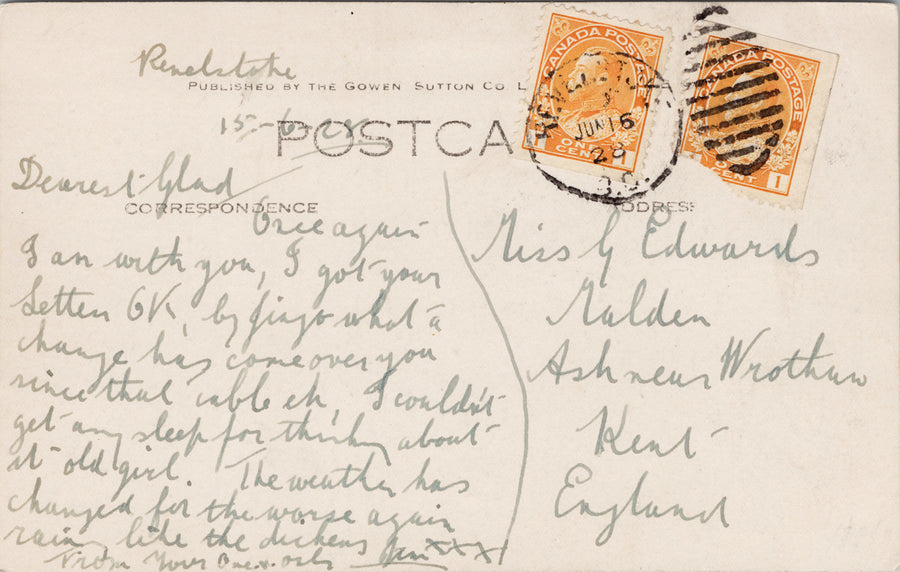 Revelstoke
PUBLISHED BY THE GOWEN SUTTON CO. L
15-6-28
POSTCA
Dearest Glad
CORRESPONDENCE
Once again
I am with you, I got your
letter OK, by jingo what a
change has come over you
since that cable eh, I couldn't
get any sleep for thinking about
it old girl. The weather has
changed for the worse again
raining like the dickens
From Your One & only xxxx
CANADA POSTAGE
ONE CENT 1
REVELSTOKE
JUN 15
28
B.C.
CANADA POSTAGE
CENT 1
DDRESS
Miss G Edwards
Malden
Ash near Wrotham
Kent
England